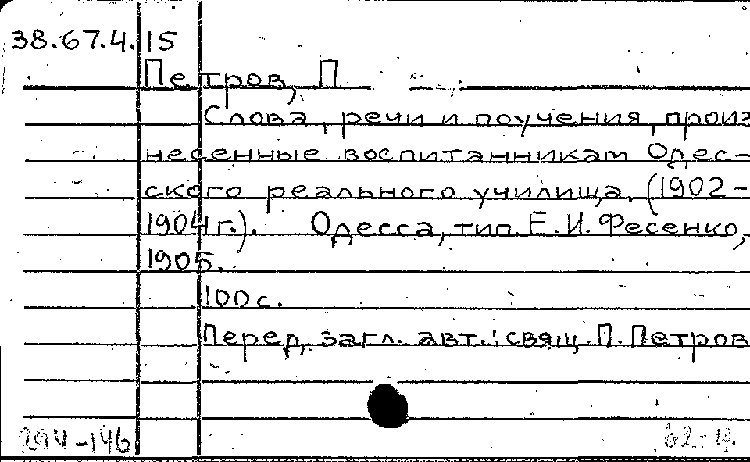 38.67.4.15
Петров, П
Слова, речи и поучения, произ
несенные воспитанникам Одес-
ского реального училища. (1902-
1904 г.). Одесса, тип. Е.И. Фесенко,
1905.
100 с.
Перед загл. авт.: свящ. П. Петров
294-146